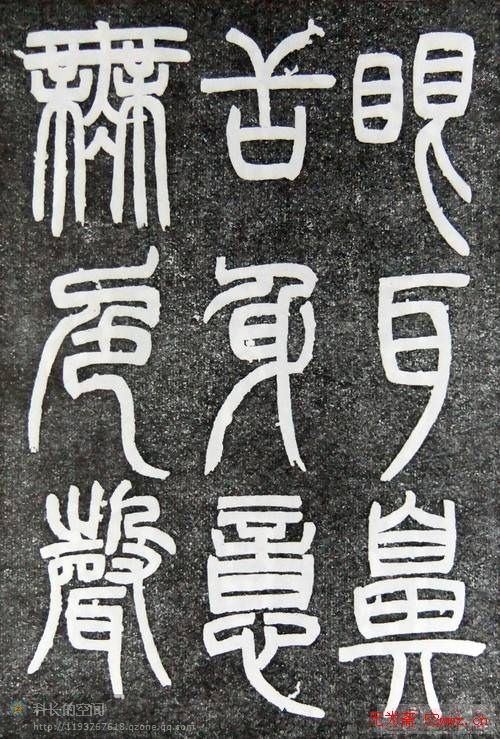 眼耳鼻
舌身意
無色聲
科长的空间
http://1193767618.qzone.qq.com